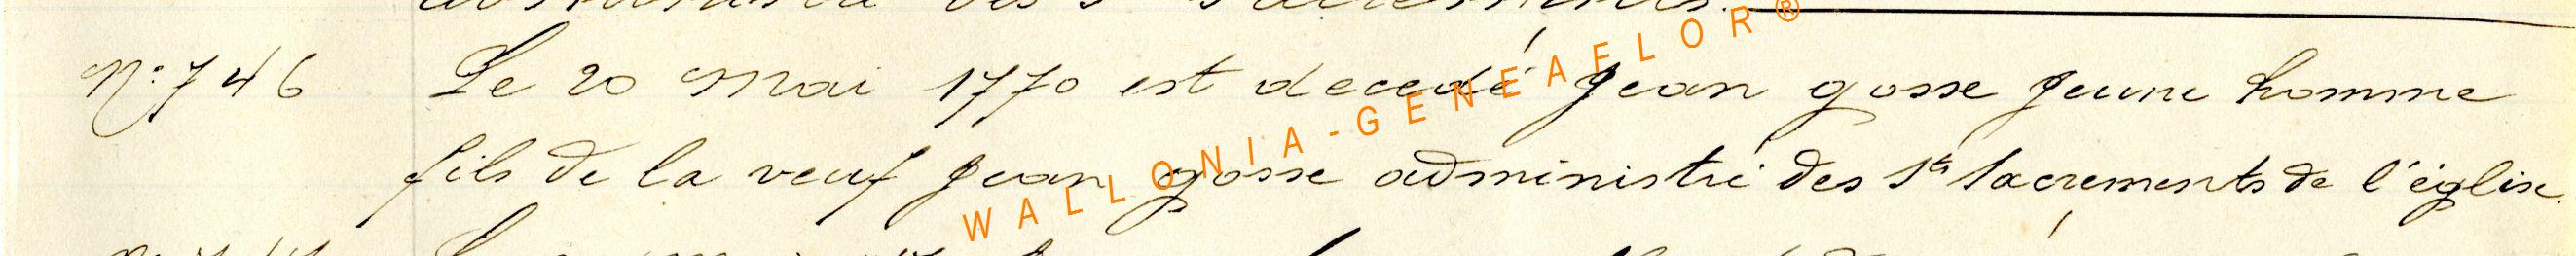 N:746 Le 20 Mai 1770 est decedé Jean gosse Jeune homme
fils de la veuf Jean gosse administré des Sts Sacrements de l'église.
WALLONIA-GENEAFLOR®